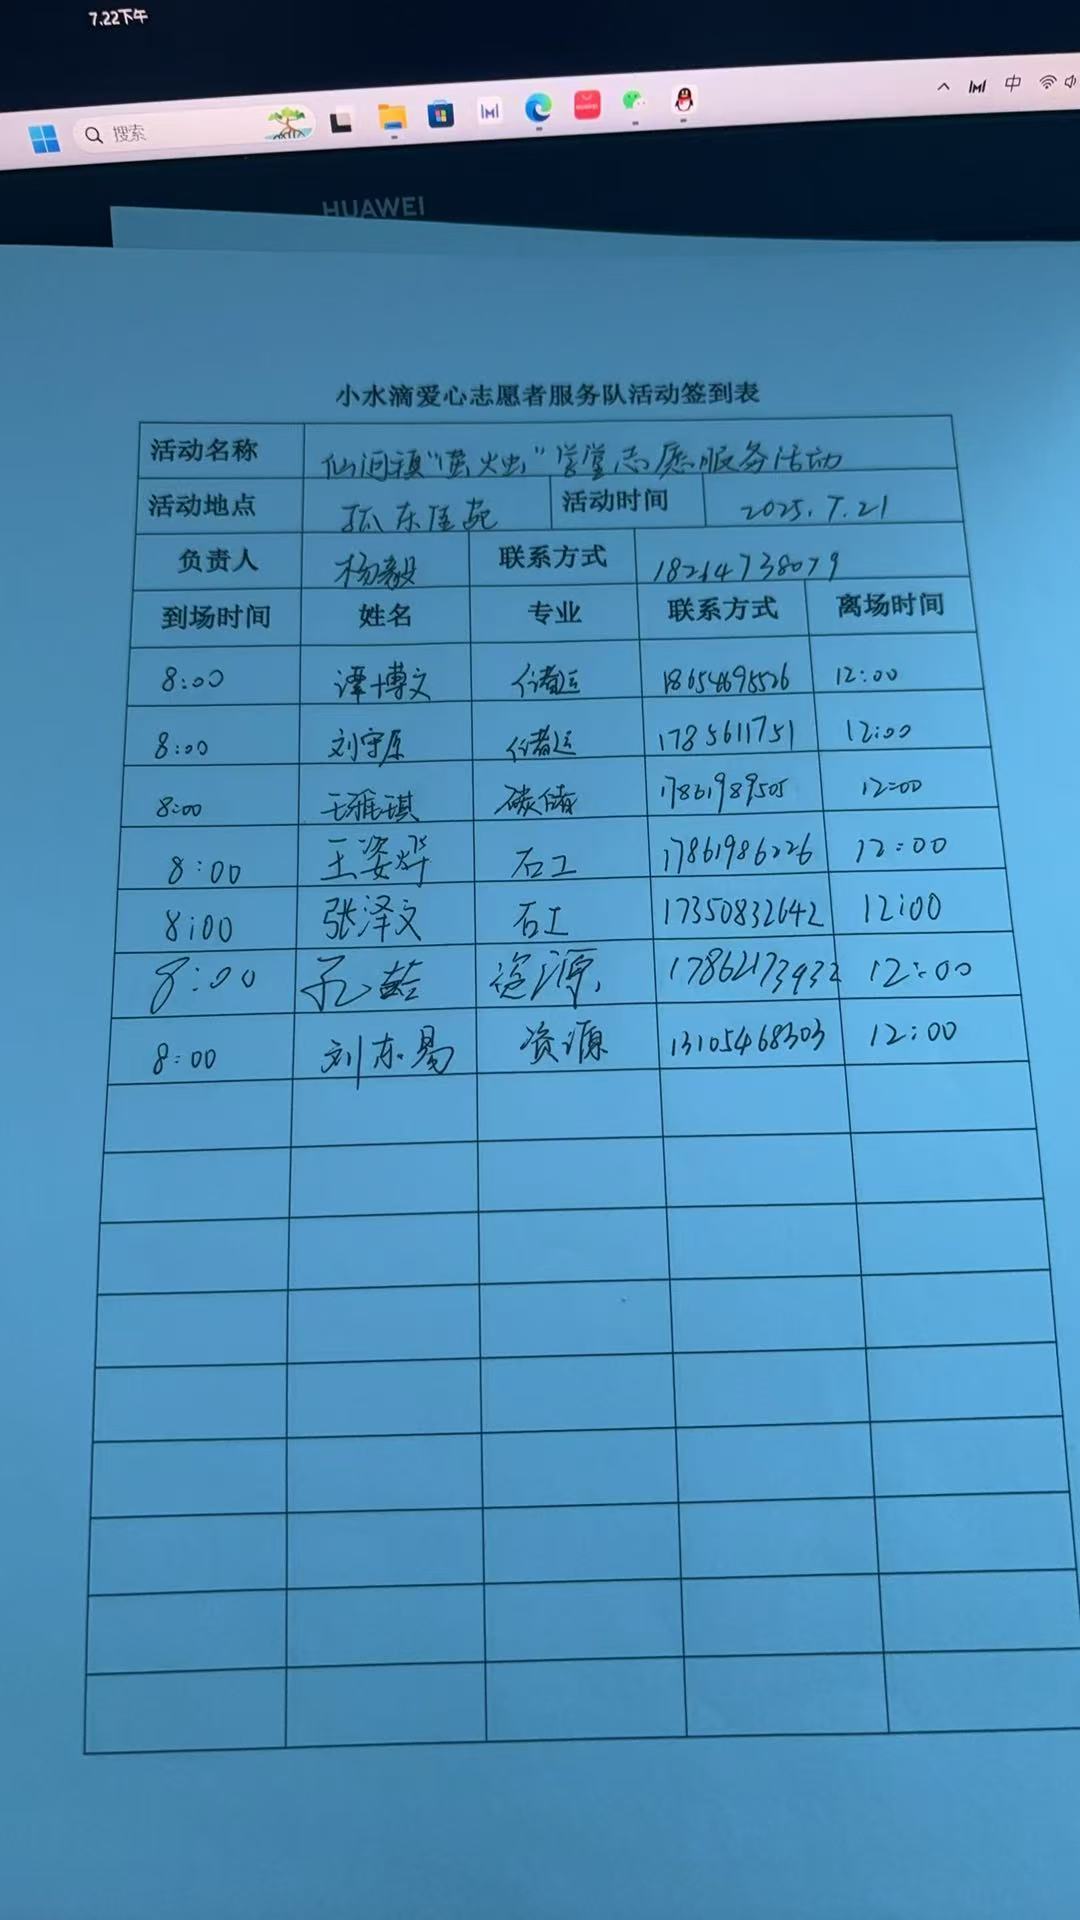 7.22下午
搜索
中
HUAWEI
小水滴爱心志愿者服务队活动签到表
活动名称 仙河镇“萤火虫”学堂志愿服务活动
活动地点 孤东佳苑 活动时间 2025.7.21
负责人 杨毅 联系方式 18264738079
到场时间 姓名 专业 联系方式 离场时间
8:00 谭博文 储运 18654695526 12:00
8:00 刘守原 储运 1785611751 12:00
8:00 王雅琪 碳储 17861989505 12:00
8:00 王姿烨 石工 17861986226 12:00
8:00 张泽文 石工 17350832642 12:00
8:00 孔 资源 17862173932 12:00
8:00 刘东易 资源 13105468303 12:00